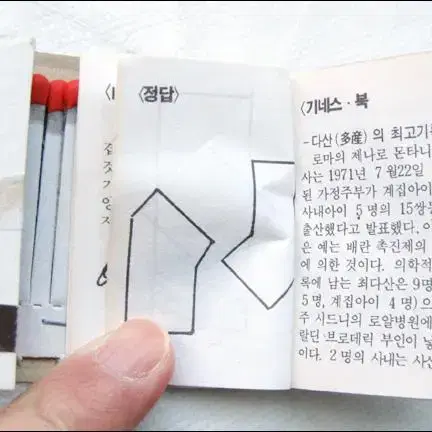 〈정답〉
〈기네스·북
-다산(多産)의 최고기
로마의 제나로 몬타니
사는 1971年 7月22일
된 가정주부가 계집아이
사내아이 5명의 15쌍둥
출산했다고 발표했다. 이
은 예는 배란 촉진제의
에 의한 것이다. 의학적
록에 남는 최다산은 9명
5명, 계집아이 4명)으
주 시드니의 로얄병원에
랄딘·브로데릭 부인이 낳
이다. 2명의 사내는 사산